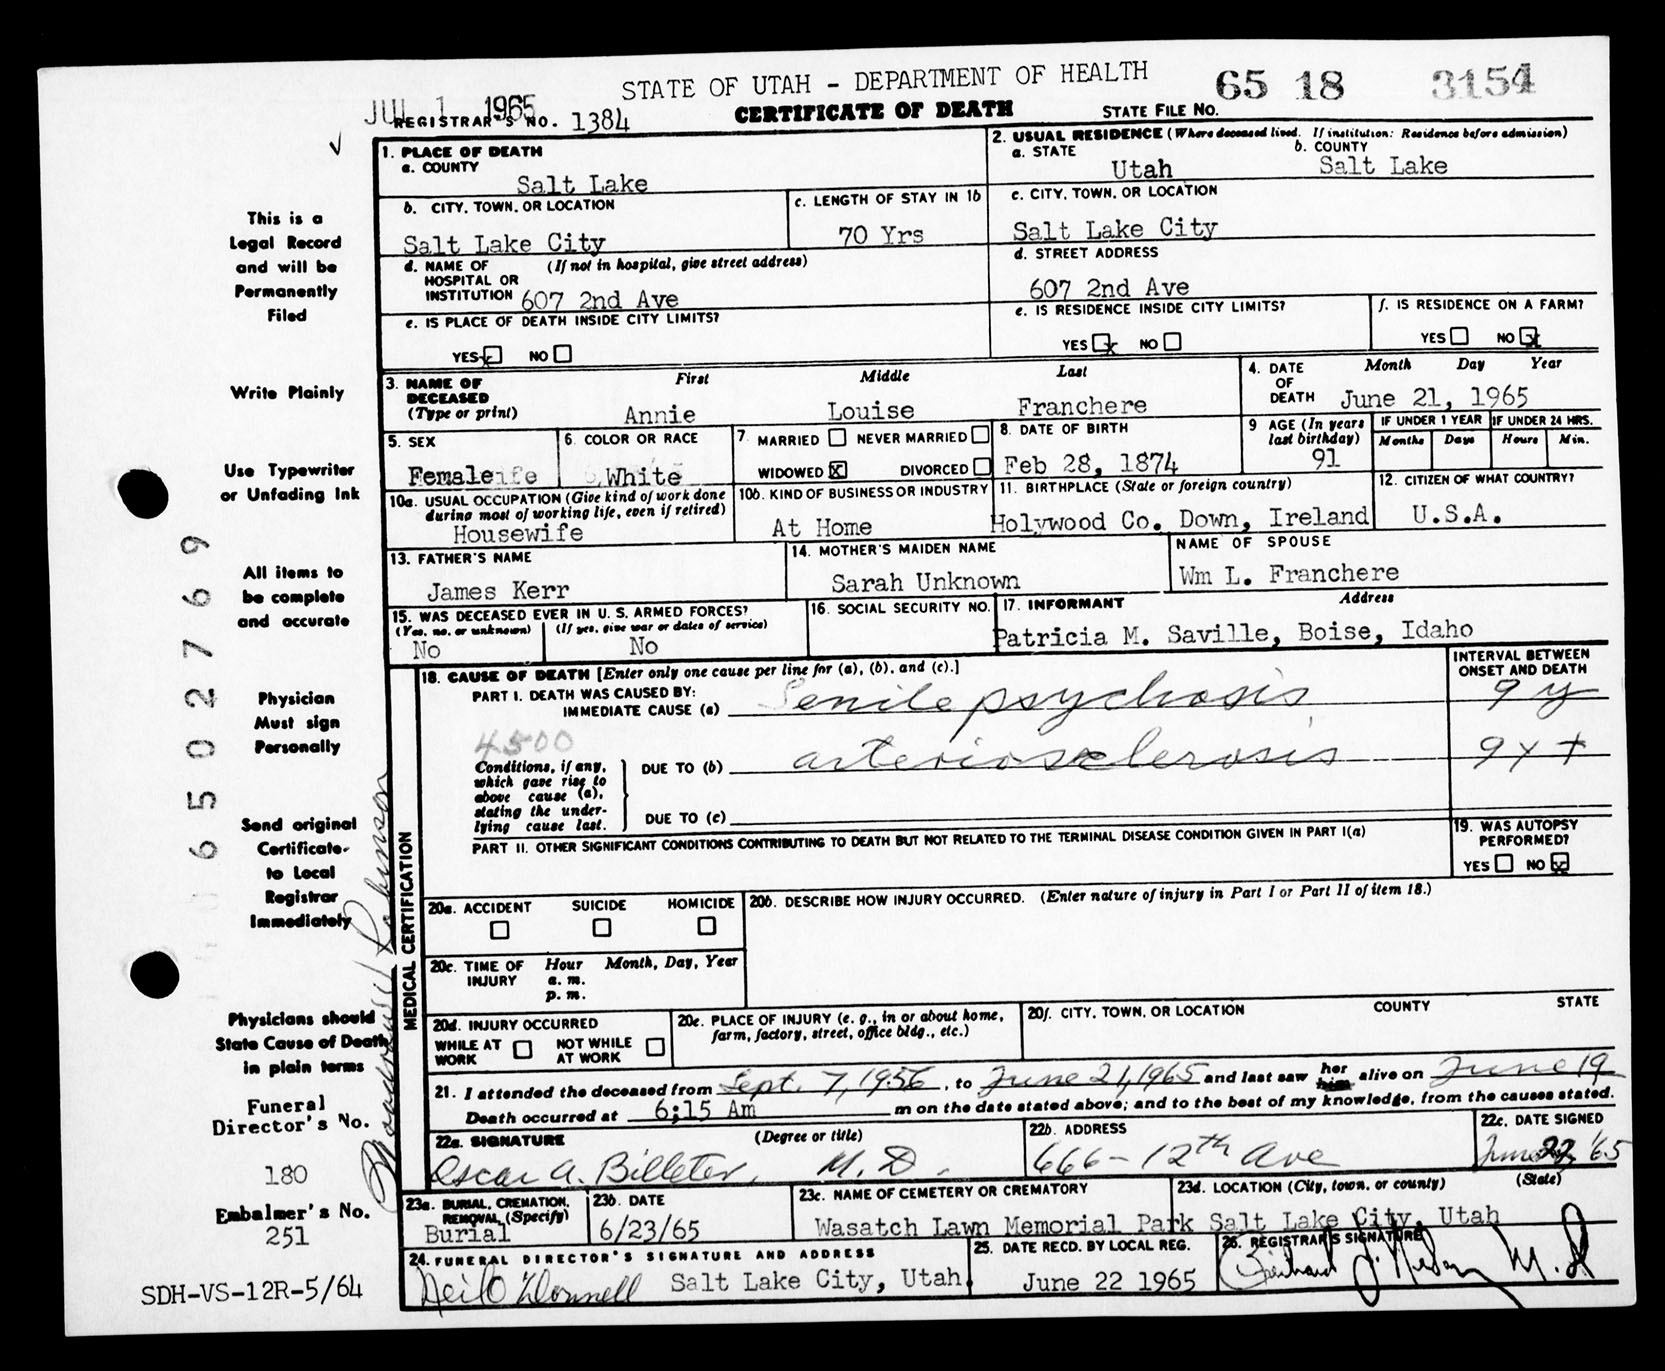 STATE OF UTAH - DEPARTMENT OF HEALTH
65 18 3154
JUL 1 1965
REGISTRAR'S NO. 1384
CERTIFICATE OF DEATH
STATE FILE NO.
1. PLACE OF DEATH
a. COUNTY
Salt Lake
2. USUAL RESIDENCE (Where deceased lived. If institution: Residence before admission)
a. STATE
Utah
b. COUNTY
Salt Lake
b. CITY, TOWN, OR LOCATION
Salt Lake City
c. LENGTH OF STAY IN 1b
70 Yrs
c. CITY, TOWN, OR LOCATION
Salt Lake City
d. NAME OF HOSPITAL OR INSTITUTION (If not in hospital, give street address)
607 2nd Ave
d. STREET ADDRESS
607 2nd Ave
e. IS PLACE OF DEATH INSIDE CITY LIMITS?
YES x NO
e. IS RESIDENCE INSIDE CITY LIMITS?
YES x NO
f. IS RESIDENCE ON A FARM?
YES NO x
3. NAME OF DECEASED (Type or print)
First Middle Last
Annie Louise Franchere
4. DATE OF DEATH
Month Day Year
June 21, 1965
5. SEX
Female
6. COLOR OR RACE
White
7. MARRIED NEVER MARRIED
WIDOWED x DIVORCED
8. DATE OF BIRTH
Feb 28, 1874
9 AGE (In years last birthday)
91
IF UNDER 1 YEAR
Months Days
IF UNDER 24 HRS.
Hours Min.
10a. USUAL OCCUPATION (Give kind of work done during most of working life, even if retired)
Housewife
10b. KIND OF BUSINESS OR INDUSTRY
At Home
11. BIRTHPLACE (State or foreign country)
Holywood Co. Down, Ireland
12. CITIZEN OF WHAT COUNTRY?
U.S.A.
13. FATHER'S NAME
James Kerr
14. MOTHER'S MAIDEN NAME
Sarah Unknown
NAME OF SPOUSE
Wm L. Franchere
15. WAS DECEASED EVER IN U. S. ARMED FORCES?
(Yes, no, or unknown) (If yes, give war or dates of service)
No No
16. SOCIAL SECURITY NO.
17. INFORMANT Address
Patricia M. Saville, Boise, Idaho
MEDICAL CERTIFICATION
18. CAUSE OF DEATH [Enter only one cause per line for (a), (b), and (c).]
INTERVAL BETWEEN ONSET AND DEATH
PART I. DEATH WAS CAUSED BY:
IMMEDIATE CAUSE (a) Senile psychosis 9 y
4500
Conditions, if any, which gave rise to above cause (a), stating the underlying cause last.
DUE TO (b) arteriosclerosis 9 y +
DUE TO (c)
PART II. OTHER SIGNIFICANT CONDITIONS CONTRIBUTING TO DEATH BUT NOT RELATED TO THE TERMINAL DISEASE CONDITION GIVEN IN PART I(a)
19. WAS AUTOPSY PERFORMED?
YES NO x
20a. ACCIDENT SUICIDE HOMICIDE
20b. DESCRIBE HOW INJURY OCCURRED. (Enter nature of injury in Part I or Part II of item 18.)
20c. TIME OF INJURY
Hour Month, Day, Year
a. m.
p. m.
20d. INJURY OCCURRED
WHILE AT WORK NOT WHILE AT WORK
20e. PLACE OF INJURY (e. g., in or about home, farm, factory, street, office bldg., etc.)
20f. CITY, TOWN, OR LOCATION COUNTY STATE
21. I attended the deceased from Sept. 7, 1956, to June 21, 1965 and last saw her him alive on June 19
Death occurred at 6;15 Am m on the date stated above; and to the best of my knowledge, from the causes stated.
22a. SIGNATURE (Degree or title)
Oscar A. Billeter, M.D.
22b. ADDRESS
666 - 12th Ave
22c. DATE SIGNED
June 22, '65
23a. BURIAL, CREMATION, REMOVAL (Specify)
Burial
23b. DATE
6/23/65
23c. NAME OF CEMETERY OR CREMATORY
Wasatch Lawn Memorial Park
23d. LOCATION (City, town, or county) (State)
Salt Lake City, Utah
24. FUNERAL DIRECTOR'S SIGNATURE AND ADDRESS
Neil O'Donnell Salt Lake City, Utah.
25. DATE RECD. BY LOCAL REG.
June 22 1965
26. REGISTRAR'S SIGNATURE
M.D
This is a
Legal Record
and will be
Permanently
Filed
Write Plainly
Use Typewriter
or Unfading Ink
All items to
be complete
and accurate
Physician
Must sign
Personally
Send original
Certificate
to Local
Registrar
Immediately
Physicians should
State Cause of Death
in plain terms
Funeral
Director's No.
180
Embalmer's No.
251
SDH-VS-12R-5/64
Robinson
06502769